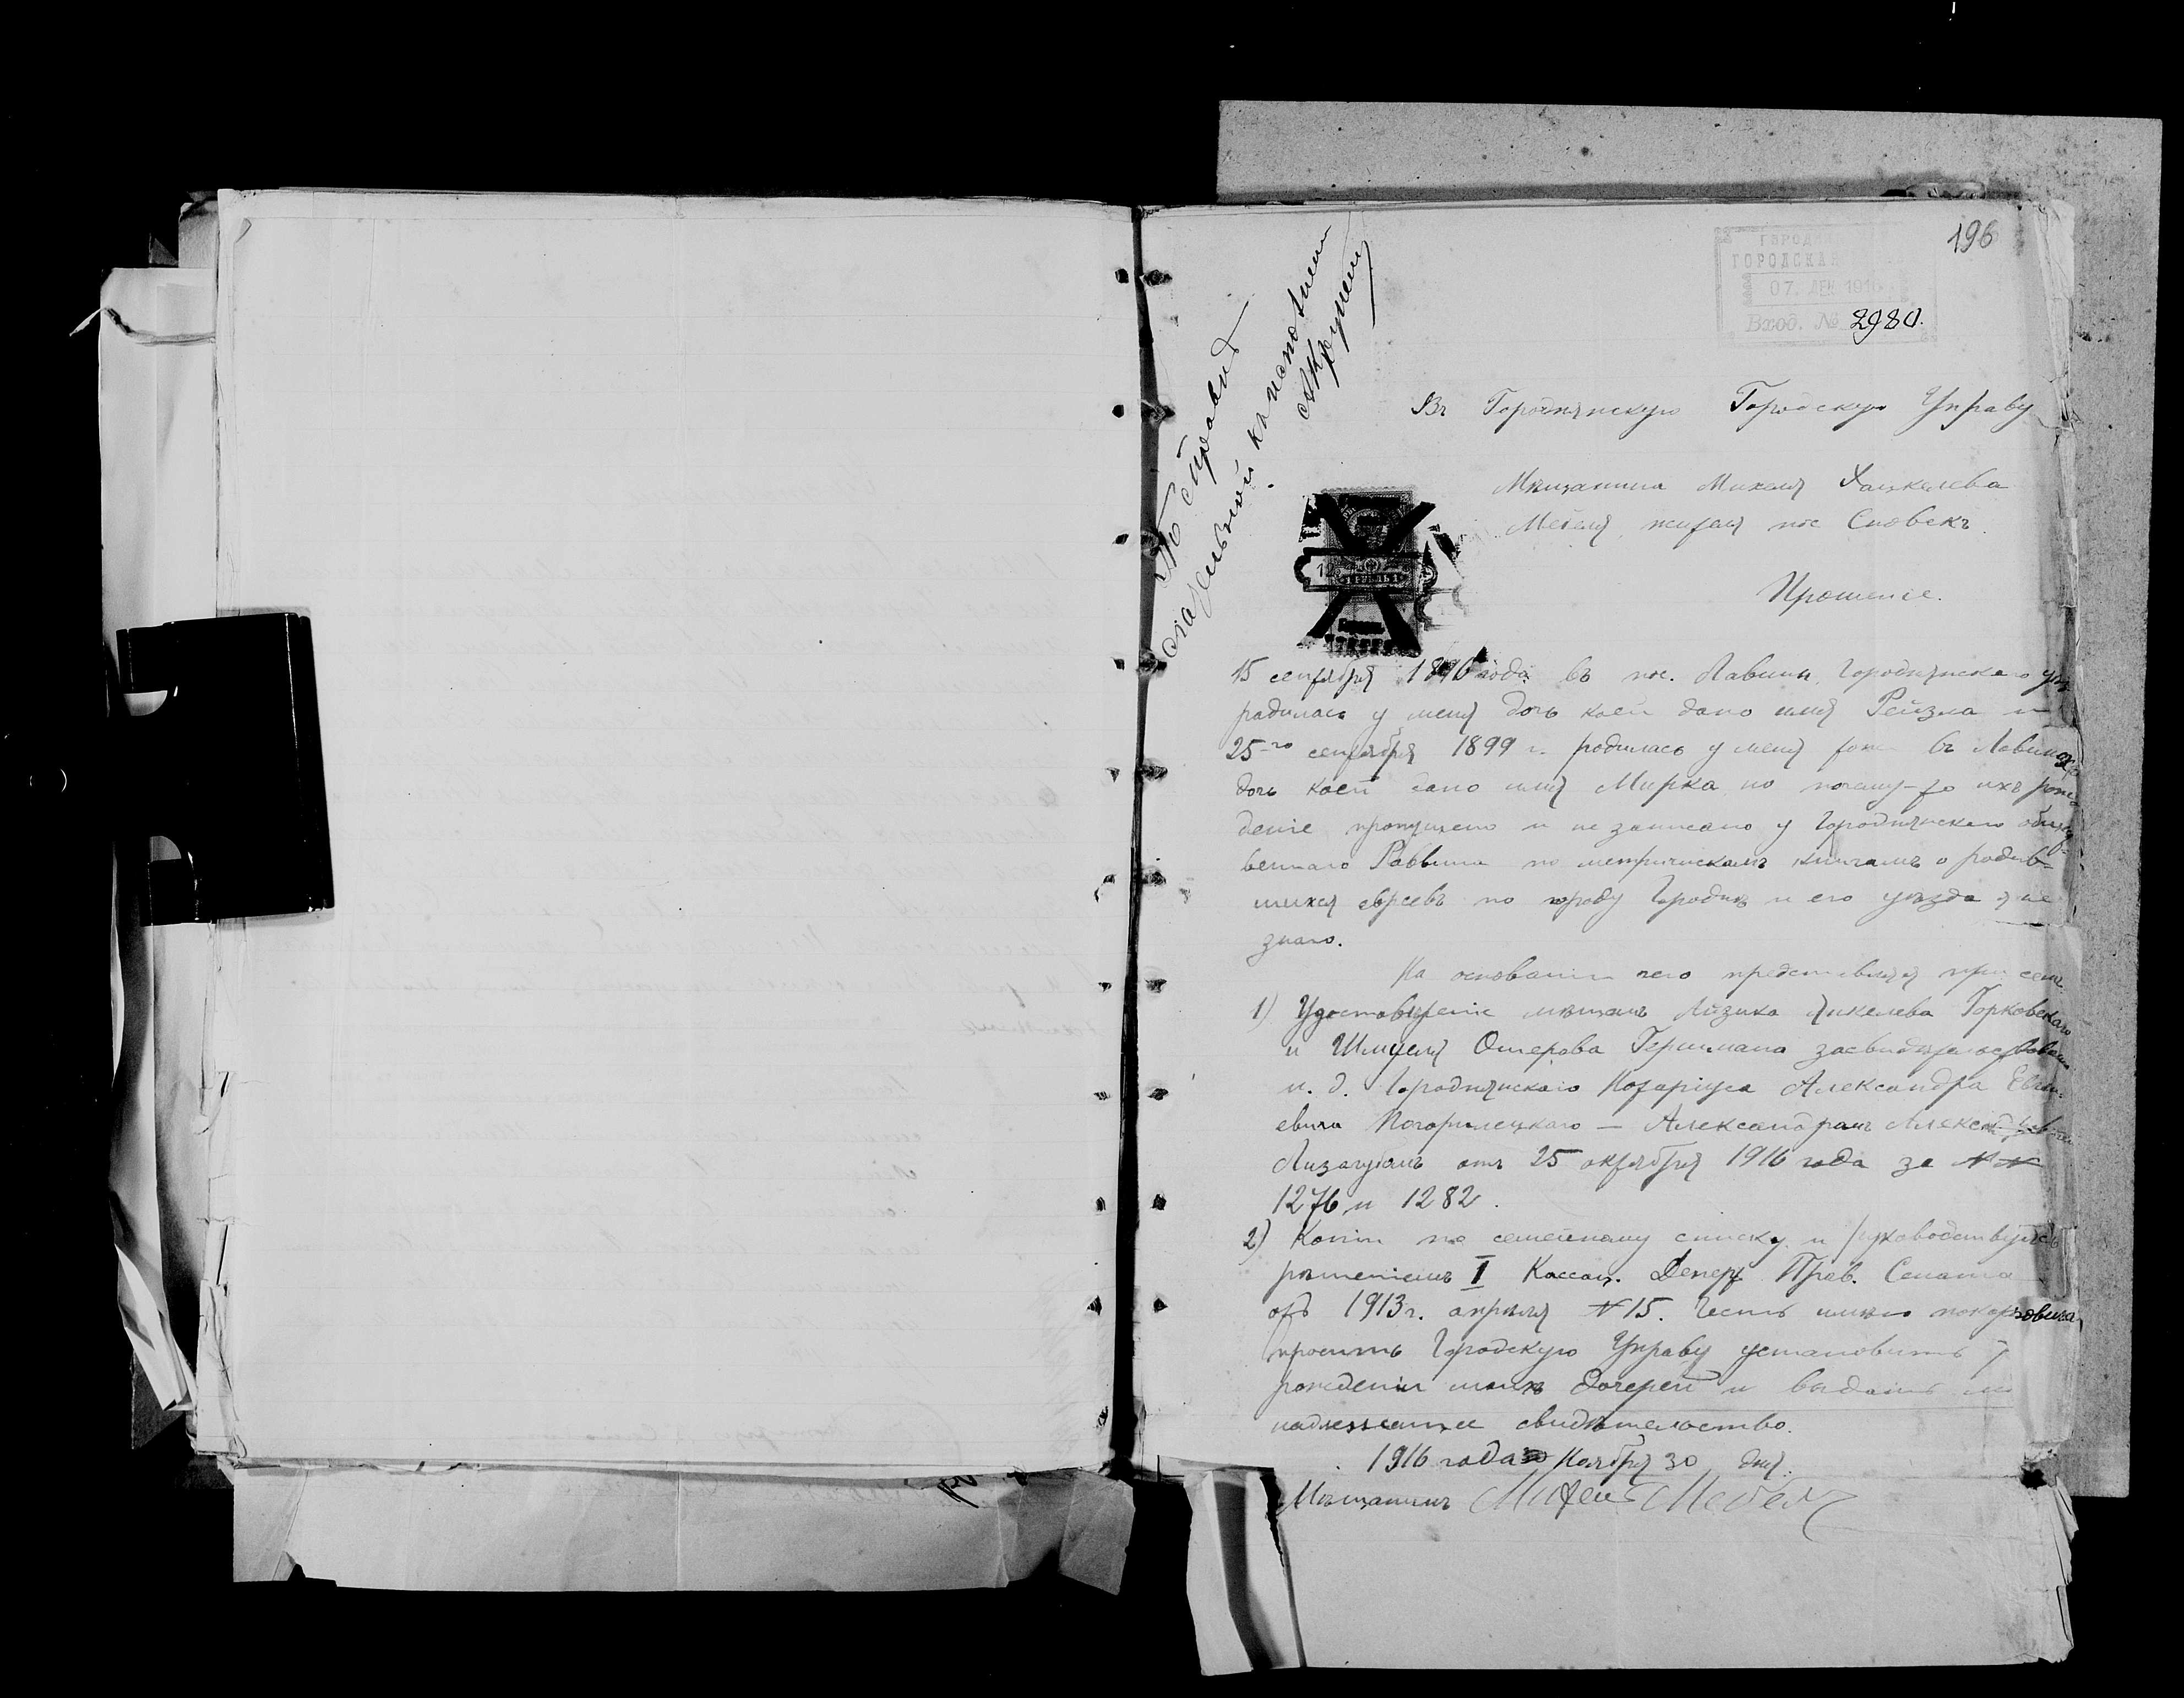 196
ГОРОДСКАЯ
07. ДЕК 1916
Вход. № 2980.
По справкѣ
къ исполнен
Въ Городнянскую Городскую Управу
Мѣщанина Михеля Хацкелева
Мебеля, жителя пос Сновскъ
Прошеніе.
1 РУБЛЬ 1
15 сентября 1896 года въ пос. Лавины Городнянскаго уѣз
радилась у меня дочь коей дано имя Рейзла и
25-го сентября 1899 г. родилась у меня тоже въ
дочь коей дано имя Мирка но почему-то ихъ рож
деніе пропущено и не записано у Городнянскаго общест
веннаго Раввина по метрическимъ книгамъ о родив-
шихся евреевъ по городу Городнѣ и его уѣзда я не
знаю.
На основаніи чего представляя при семъ:
1) Удостовѣреніе мѣщанъ Айзика Янкелева Горковскаго
и Шмуеля Ошерова Гершмана засвидѣтельствован
и. д. Городнянскаго Нотаріуса Александра Евгені
евича Погорилецкаго — Александромъ
Лизогубомъ отъ 25 октября 1916 года за №№
1276 и 1282.
2) Копіи по семейному списку и руководствуясь
рѣшеніемъ I Кассац. Депер. Прав. Сената
отъ 1913 г. апрѣля № 15. Честь имѣю покор
просить Городскую Управу установить
рожденія моихъ дочерей и выдать мнѣ
надлежащее свидѣтельство.
1916 года Ноября 30 дня.
Мѣщанинъ Михель Мебель